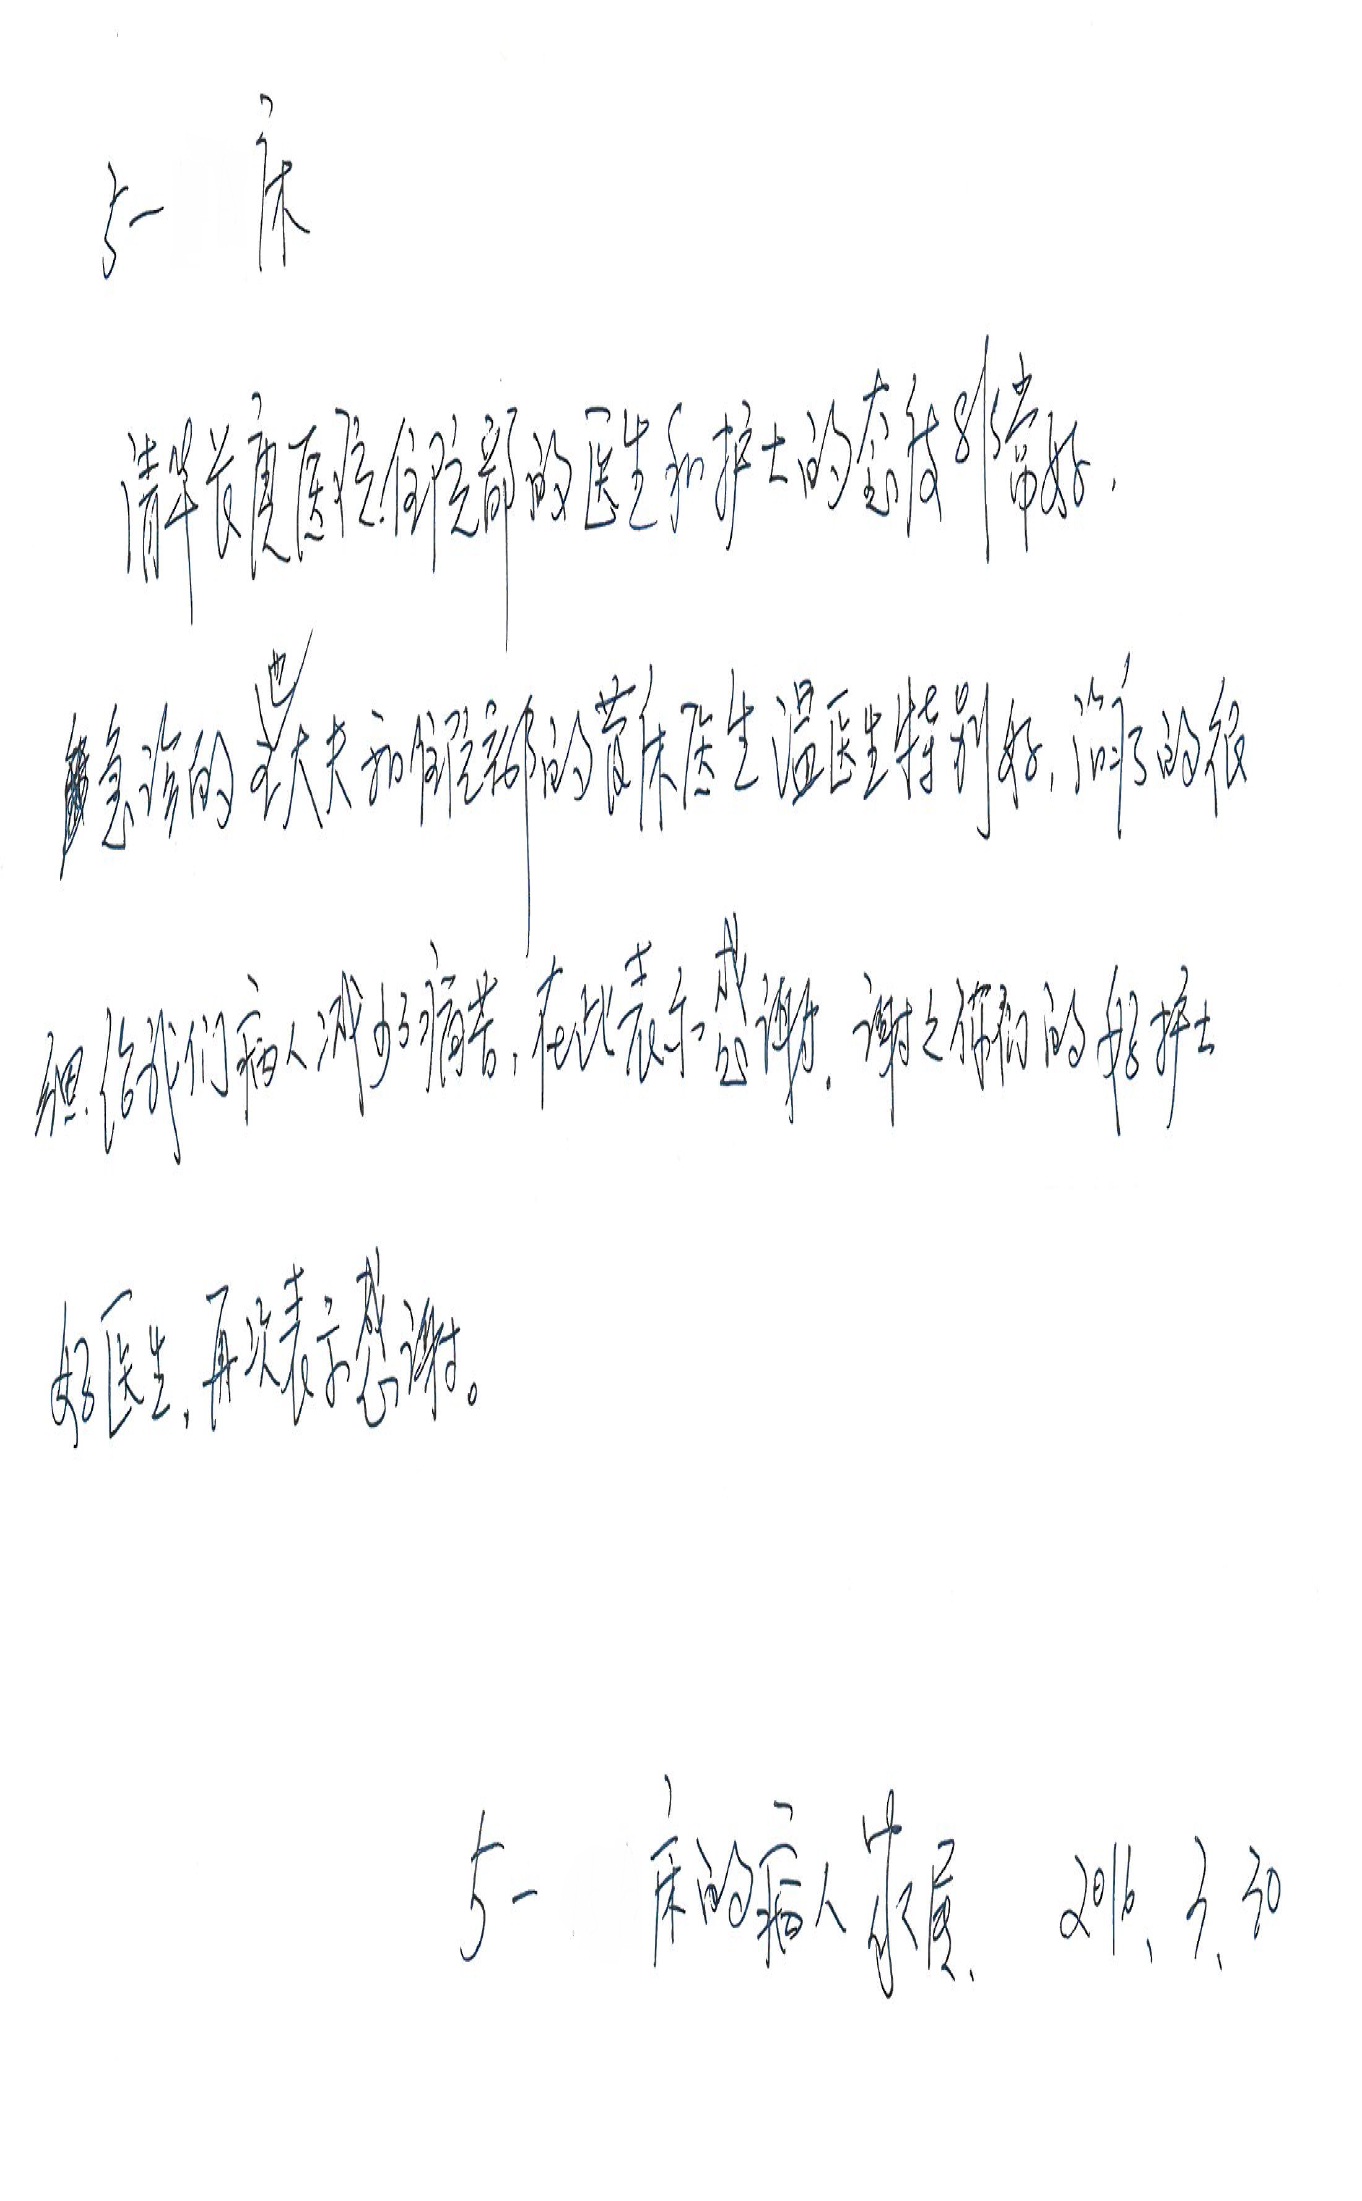 5- 床
清华长庚医院住院部的医生和护士的态度非常好.
急诊的大夫和住院部的管床医生温医生特别好,治疗的很
细.给我们病人减少了痛苦,在此表示感谢.谢之你们的好护士
好医生,再次表示感谢。
5- 床的病人家属. 2016.3.30